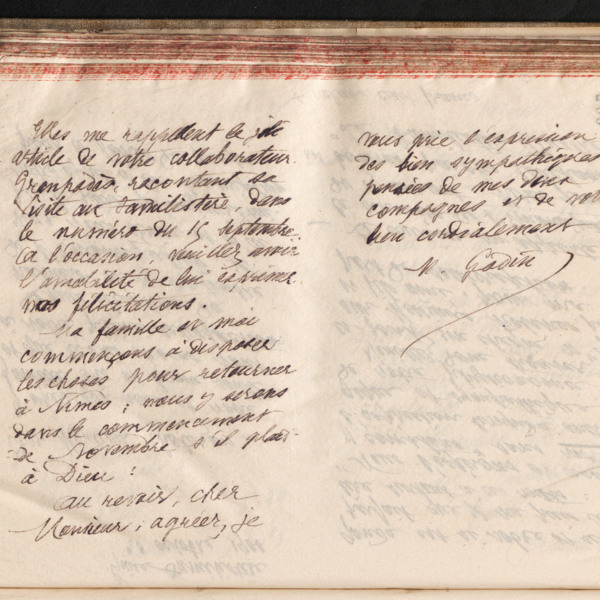 Elles me rappellent le joli
article de votre collaborateur
racontant sa
visite au Familistère, dans
le numéro du 15 septembre
(à l'occasion, veuillez avoir
l'amabilité de lui exprimer
nos félicitations.
Ma famille et moi
commençons à disposer
les choses pour retourner
à Nîmes ; nous y serons
dans le commencement
de Novembre s'il plaît
à Dieu !
au revoir, cher
Monsieur ; agréer, je
vous prie l'expression
des bien sympathiques
pensées de mes deux
compagnes et de votre
bien cordialement
M. Godin